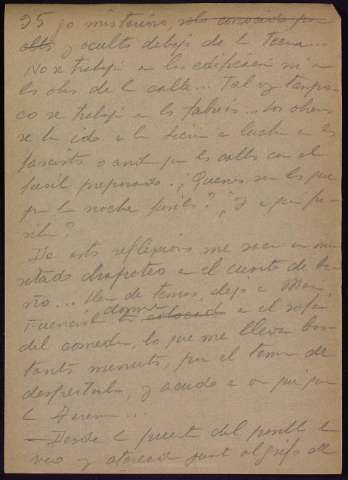 95 jo misterioso, solo conocido por
ellos y oculto debajo de la tierra...
No se trabaja en la edificación ni en
las obras de la calle... Tal vez tampo-
co se trabaja en las fábricas... Los obreros
se han ido a la sierra a luchar con los
fascistas o andan por las calles con el
fusil preparado. ¿Quiénes son los que
por la noche fusilan? ¿Y a quien fu-
silan?
De estas reflexiones me saca un
chapoteo en el cuarto de ba-
ño... Llena de temor, dejo a Mari
Fuencisla dormida en el sofá
del comedor, lo que me lleva bas-
tante minutos, por el temor de
despertarla, y acudo a ver qué pasa
...
— Desde la puerta del pasillo la
veo y aterrada junto al grifo de